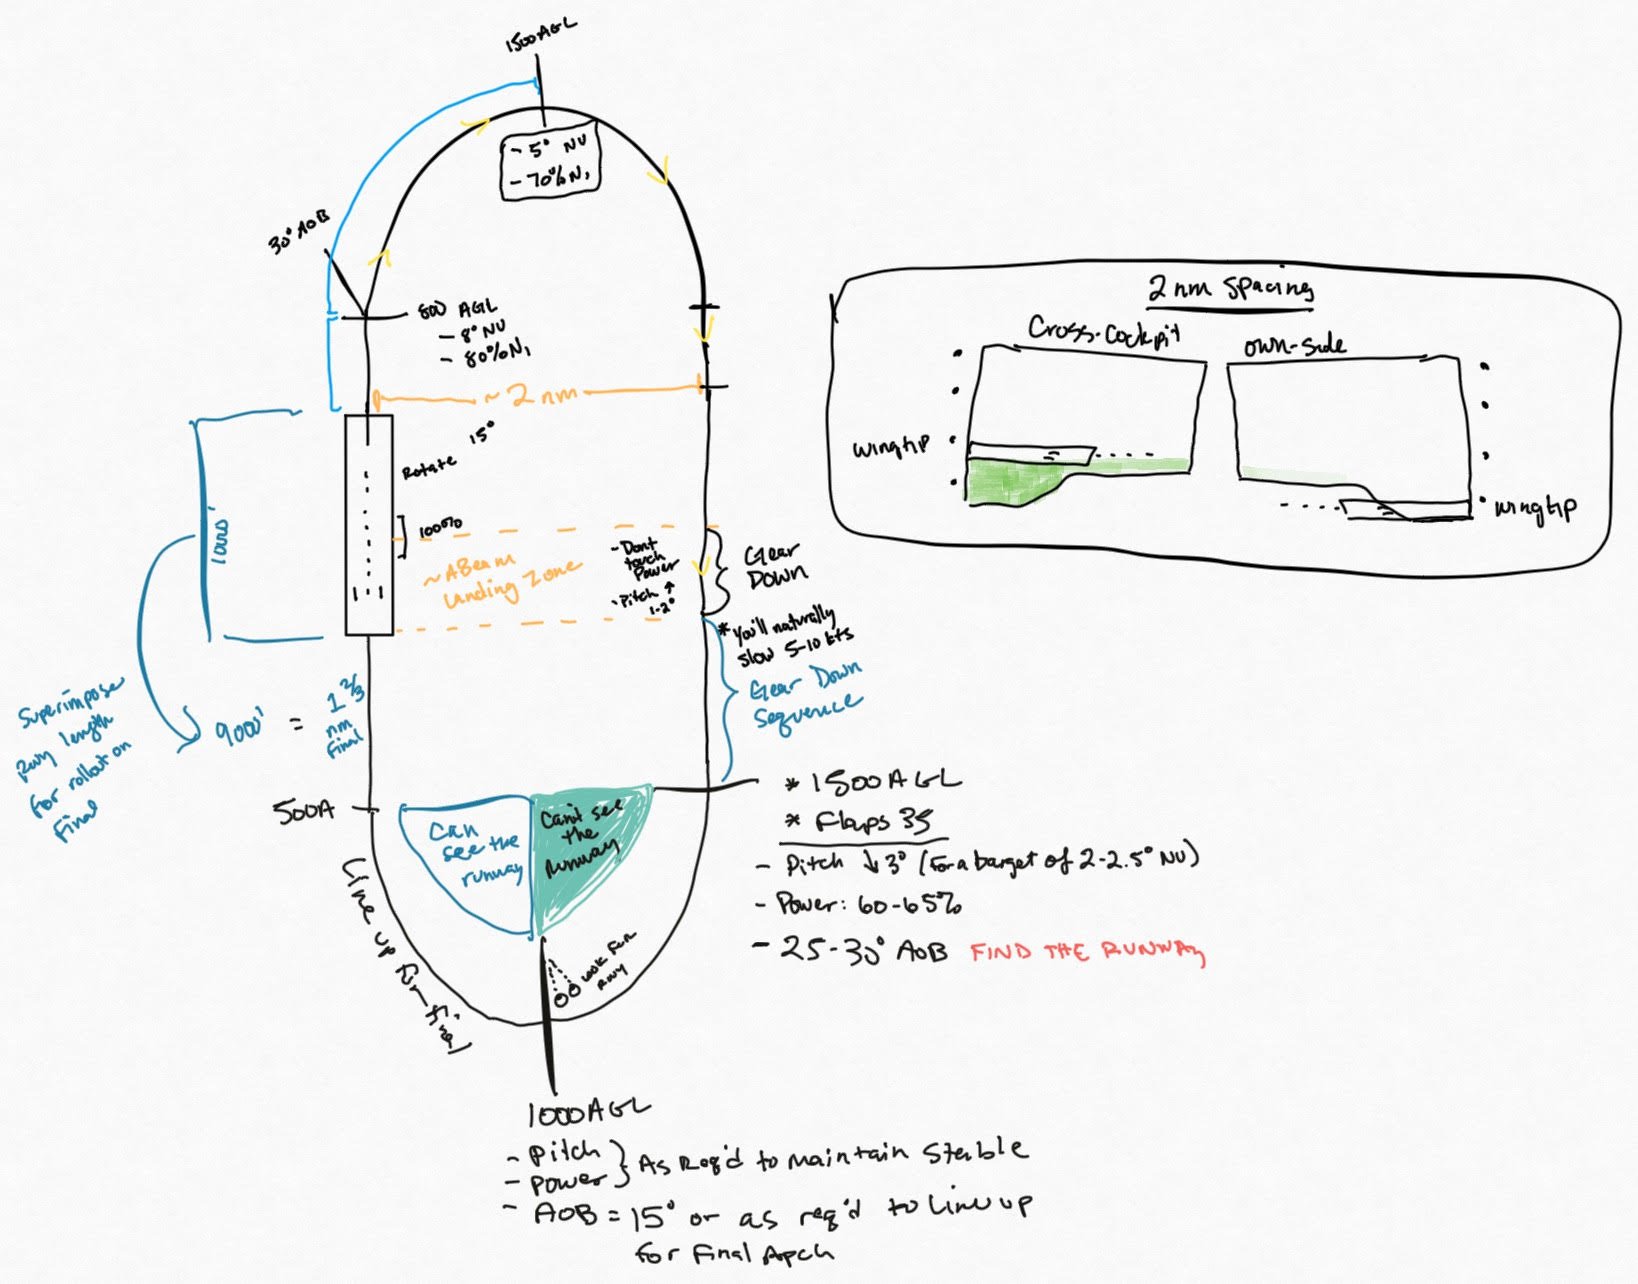 1500 AGL
- 5° NU
- 70% N₁
30° AOB
800 AGL
- 8° NU
- 80% N₁
~ 2 nm
Rotate 15°
100%
~ ABeam
Landing Zone
- Dont
touch
Power
- Pitch ↑
1-2°
Gear
Down
* You'll naturally
slow 5-10 kts
Gear Down
Sequence
Superimpose
Rwy length
for rollout on
Final
9000' = 1 2/3
nm
Final
500A
Can
see the
runway
Can't see
the
Runway
Line up for final
Look For
Rwy
* 1500 AGL
* Flaps 35
- Pitch ↓ 3° (for a target of 2-2.5° NU)
- Power: 60-65%
- 25-30° AOB FIND THE RUNWAY
1000 AGL
- Pitch
- Power } As Req'd to maintain Stable
- AOB = 15° or as req'd to Line up
for Final Apch
2 nm Spacing
Cross-Cockpit
own-side
wingtip
wingtip